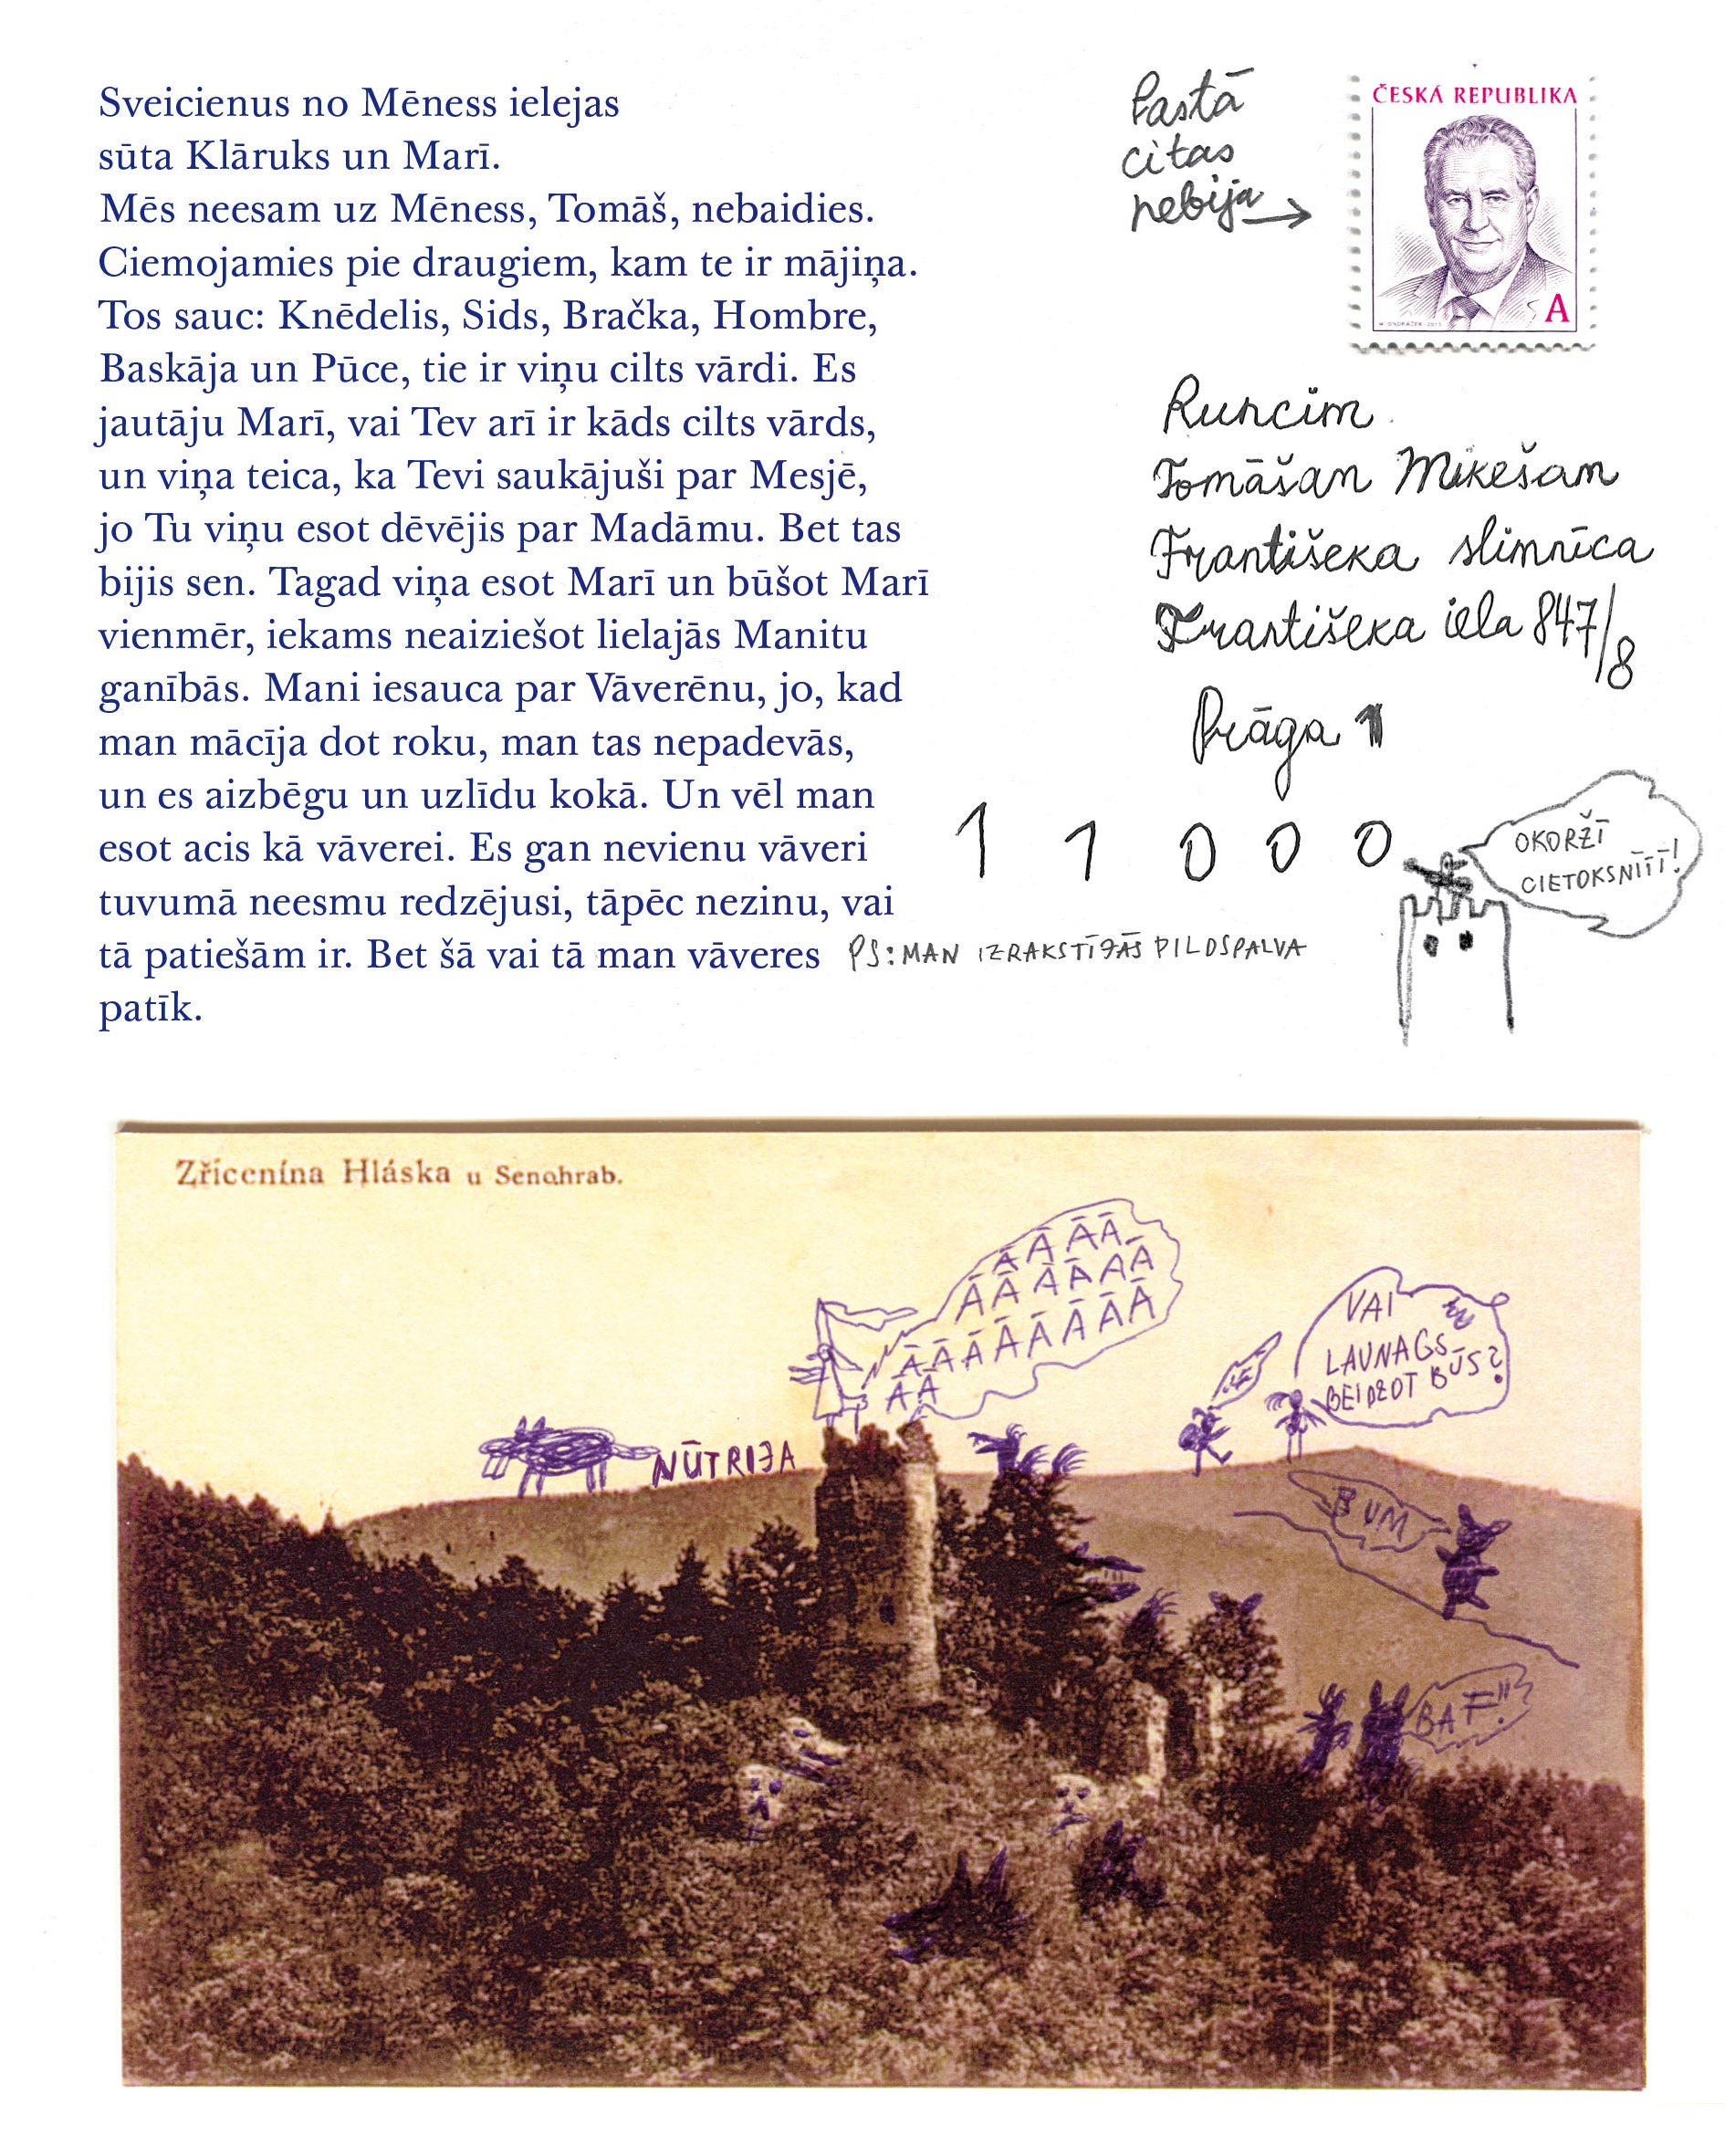 Sveicienus no Mēness ielejas
sūta Klāruks un Marī.
Mēs neesam uz Mēness, Tomāš, nebaidies.
Ciemojamies pie draugiem, kam te ir mājiņa.
Tos sauc: Knēdelis, Sids, Bračka, Hombre,
Baskāja un Pūce, tie ir viņu cilts vārdi. Es
jautāju Marī, vai Tev arī ir kāds cilts vārds,
un viņa teica, ka Tevi saukājuši par Mesjē,
jo Tu viņu esot dēvējis par Madāmu. Bet tas
bijis sen. Tagad viņa esot Marī un būšot Marī
vienmēr, iekams neaiziešot lielajās Manitu
ganībās. Mani iesauca par Vāverēnu, jo, kad
man mācīja dot roku, man tas nepadevās,
un es aizbēgu un uzlīdu kokā. Un vēl man
esot acis kā vāverei. Es gan nevienu vāveri
tuvumā neesmu redzējusi, tāpēc nezinu, vai
tā patiešām ir. Bet šā vai tā man vāveres
patīk.
PS: MAN IZRAKSTĪJĀS PILDSPALVA
Pastā
citas
nebija
ČESKÁ REPUBLIKA
A
Runcim
Tomāšam Mikešam
Františeka slimnīca
Františeka iela 847/8
Prāga 1
1 1 0 0 0
OKORŽĪ
CIETOKSNĪTĪ!
Zřícenína Hláska u Senohrab.
Ā Ā Ā Ā
Ā Ā Ā Ā Ā Ā
Ā Ā Ā Ā Ā Ā Ā
Ā Ā
NŪTRIJA
VAI
LAUNAGS
BEIDZOT BŪS?
BUM
BAF!!